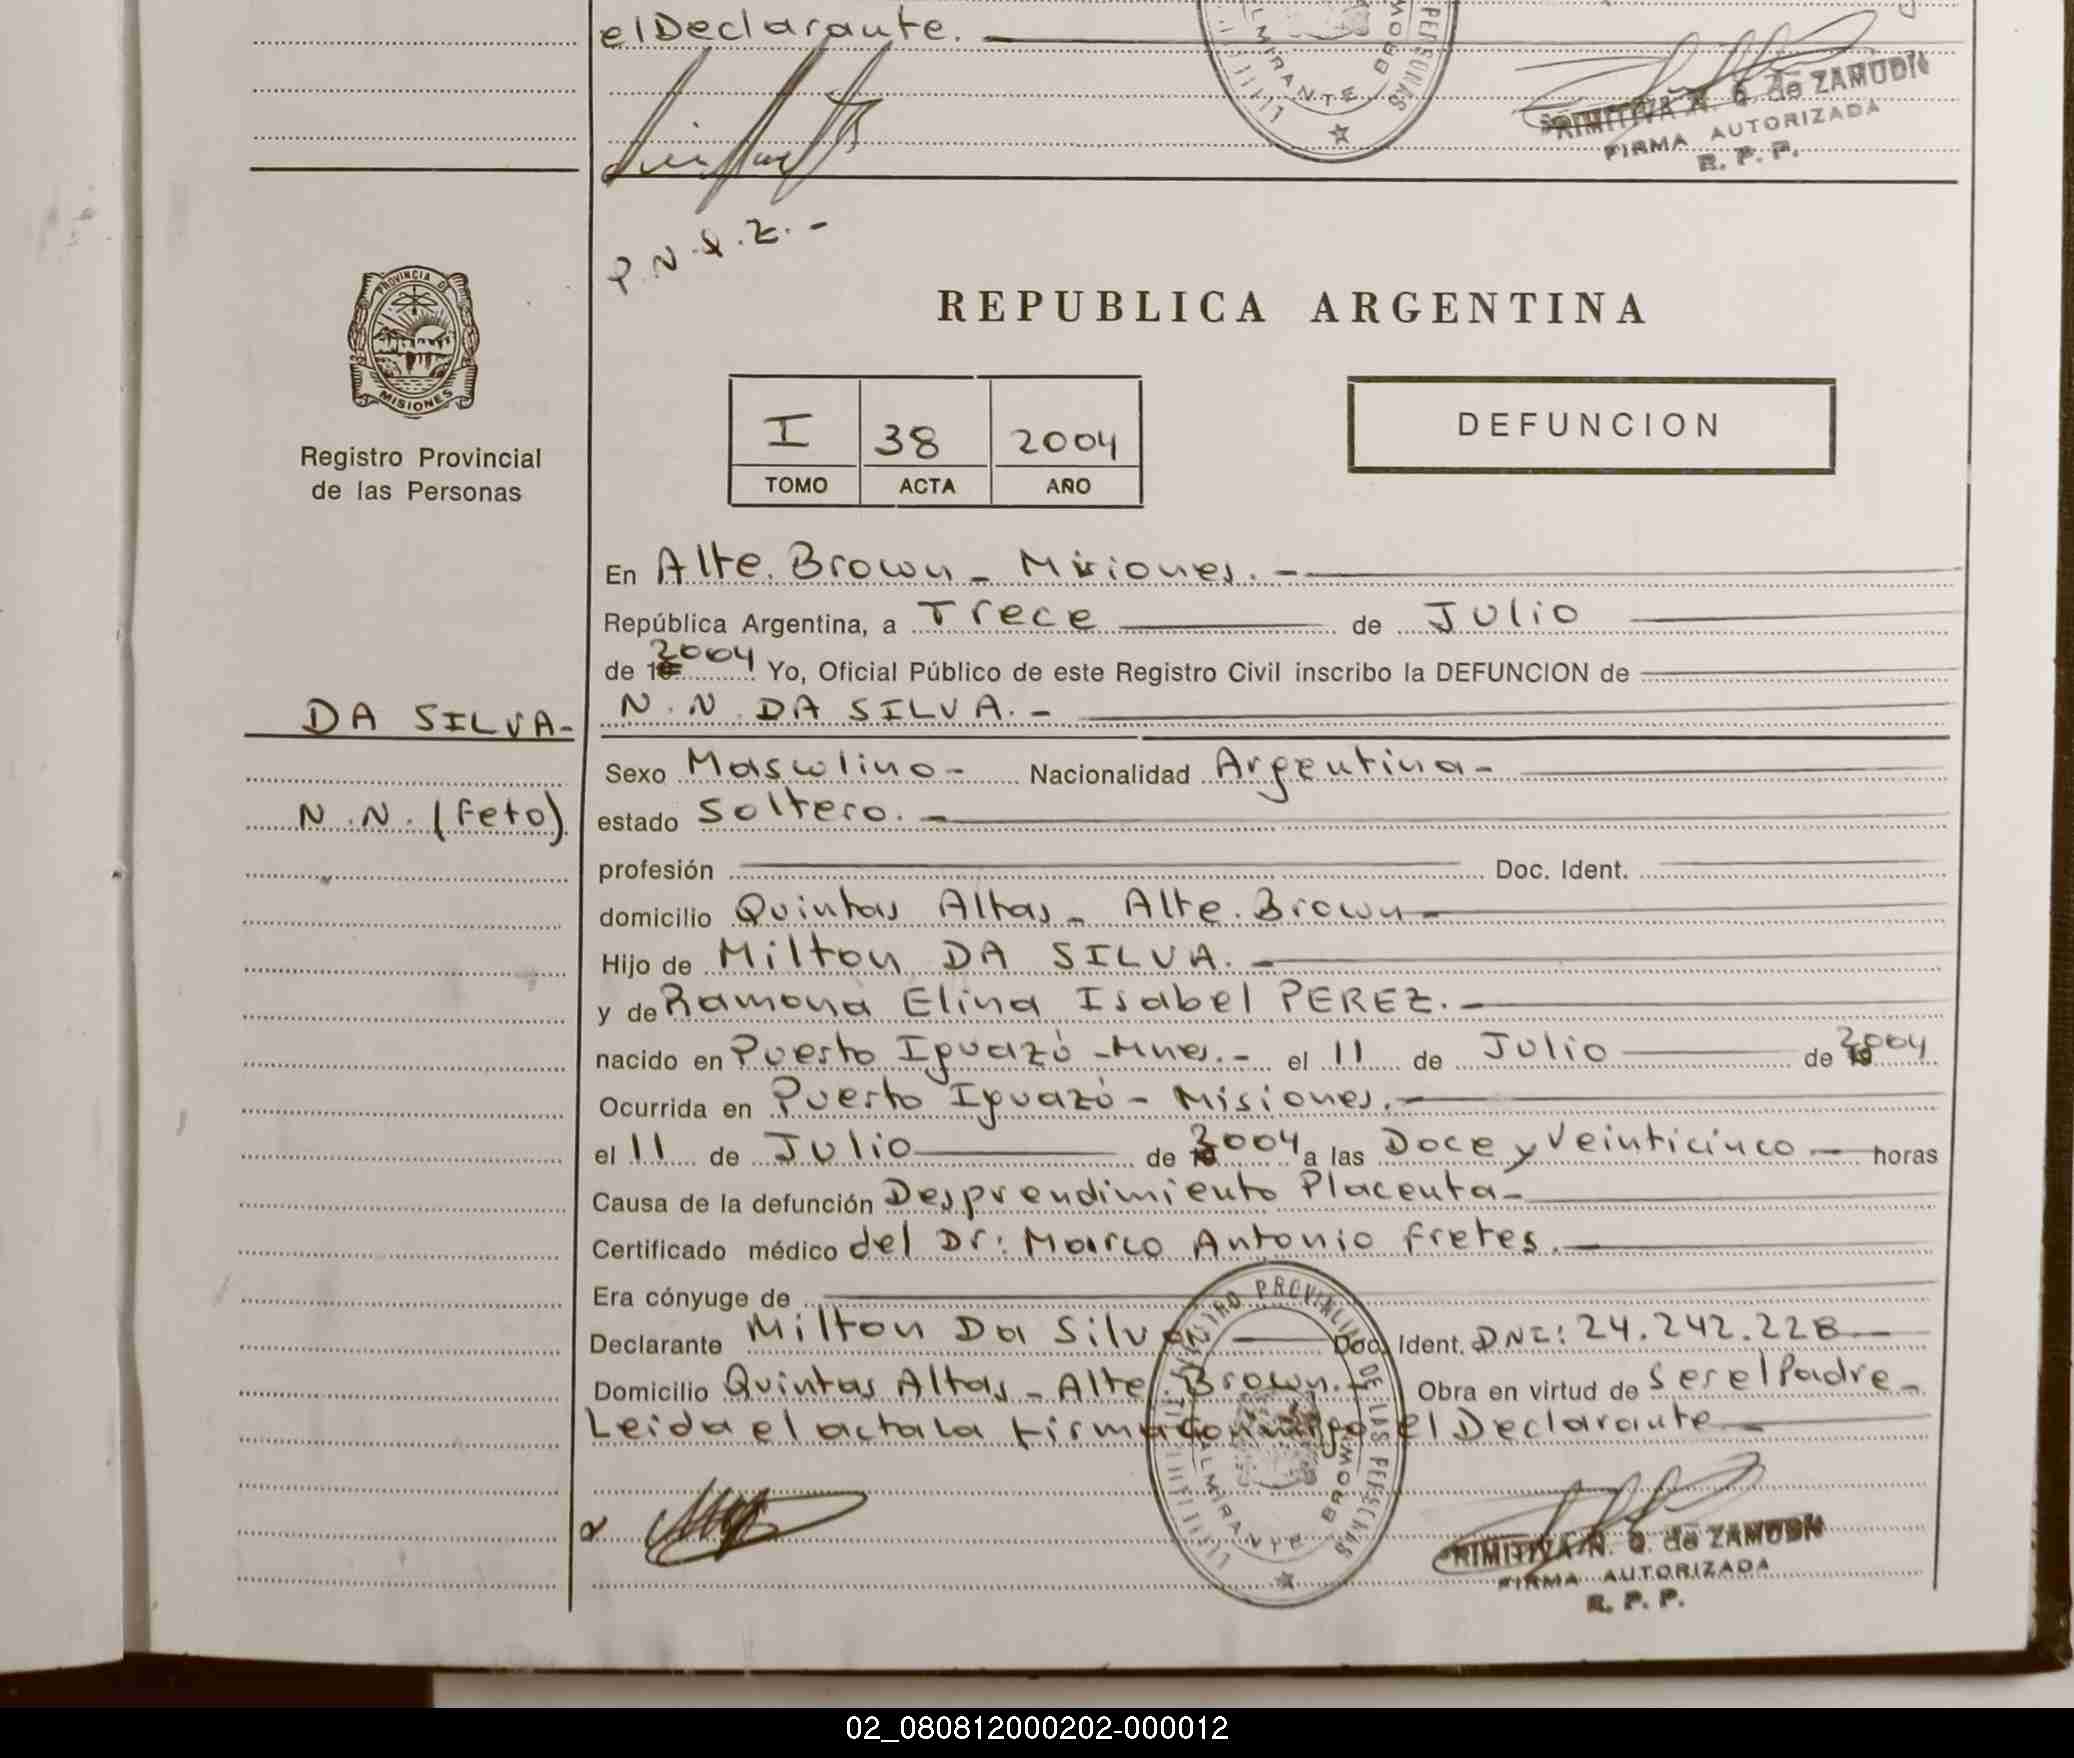 el Declarante.
ALMIRANTE BROWN
PERSONAS
PRIMITIVA N. Q. de ZAMUDIO
FIRMA AUTORIZADA
R. P. P.
PROVINCIA DE
MISIONES
Registro Provincial
de las Personas
REPUBLICA ARGENTINA
I 38 2004
TOMO ACTA AÑO
DEFUNCION
En Alte. Brown - Misiones. -
República Argentina, a Trece de Julio
de 2004 Yo, Oficial Público de este Registro Civil inscribo la DEFUNCION de
DA SILVA-
N.N. (Feto)
N. N. DA SILVA. -
Sexo Masculino- Nacionalidad Argentina-
estado Soltero. -
profesión Doc. Ident.
domicilio Quintas Altas - Alte. Brown -
Hijo de Milton DA SILVA. -
y de Ramona Elina Isabel PEREZ. -
nacido en Puerto Iguazú -Mnes. - el 11 de Julio de 2004
Ocurrida en Puerto Iguazú - Misiones. -
el 11 de Julio de 2004 a las Doce y Veinticinco - horas
Causa de la defunción Desprendimiento Placenta-
Certificado médico del Dr: Marco Antonio Fretes. -
Era cónyuge de
Declarante Milton Da Silva Doc. Ident. DNI: 24.242.228 -
Domicilio Quintas Altas - Alte. Brown. - Obra en virtud de Ser el Padre -
Leida el acta la firma conmigo el Declarante -
REGISTRO PROVINCIAL DE LAS PERSONAS
ALMIRANTE BROWN
PRIMITIVA N. Q. de ZAMUDIO
FIRMA AUTORIZADA
R. P. P.
02_080812000202-000012